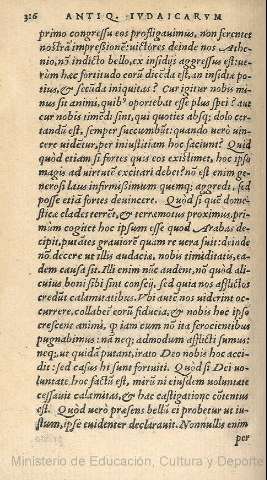 316 ANTIQ. IVDAICARVM
primo congressu eos profligauimus, non ferentes
nostrā impressionē: uictores deinde nos Athe-
nio, nō indicto bello, ex insidijs aggressus est: ue-
rùm hæc fortitudo eorū dicēda est, an insidiæ po-
tiùs, & secūda iniquitas? Cur igitur nobis mi-
nus sit animi, quib᾽ oportebat esse plus spei? aut
cur nobis timēdi sint, qui quoties absq; dolo cer-
tandū est, semper succumbūt: quando uerò uin-
cere uidētur, per iniustitiam hoc faciunt? Quid
quòd etiam si fortes quis eos existimet, hoc ipso
magis ad uirtutē excitari debet? nō est enim ge-
nerosi laus infirmissimum quemq; aggredi, sed
posse etiā fortes deuincere. Quòd si quē dome-
stica clades terret, & terræmotus proximus, pri-
mùm cogitet hoc ipsum esse quod Arabas de-
cipit, putātes grauiorē quam re uera fuit: deinde
nō decere ut illis audacia, nobis timiditatis, ea-
dem causa sit. Illi enim nūc audent, nō quòd ali-
cuius boni sibi sint conscij, sed quia nos afflictos
credūt calamitatibus. Vbi autē nos uiderint oc-
currere, collabet eorū fiducia, & nobis hoc ipso
crescent animi, q̄ iam cum nō ita ferocientibus
pugnabimus: nā neq; admodum afflicti sumus:
neq; ut quidā putant, irato Deo nobis hoc acci-
dit: sed casus hi sunt fortuiti. Quòd si Dei uo-
luntate hoc factū est, mirū ni eiusdem uoluntate
cessauit calamitas, & hac castigatione cōtentus
est. Quòd uerò præsens bellū ei probetur ut iu-
stum, ipse euidenter declarauit. Nonnullis enim
per
Ministerio de Educación, Cultura y Deporte